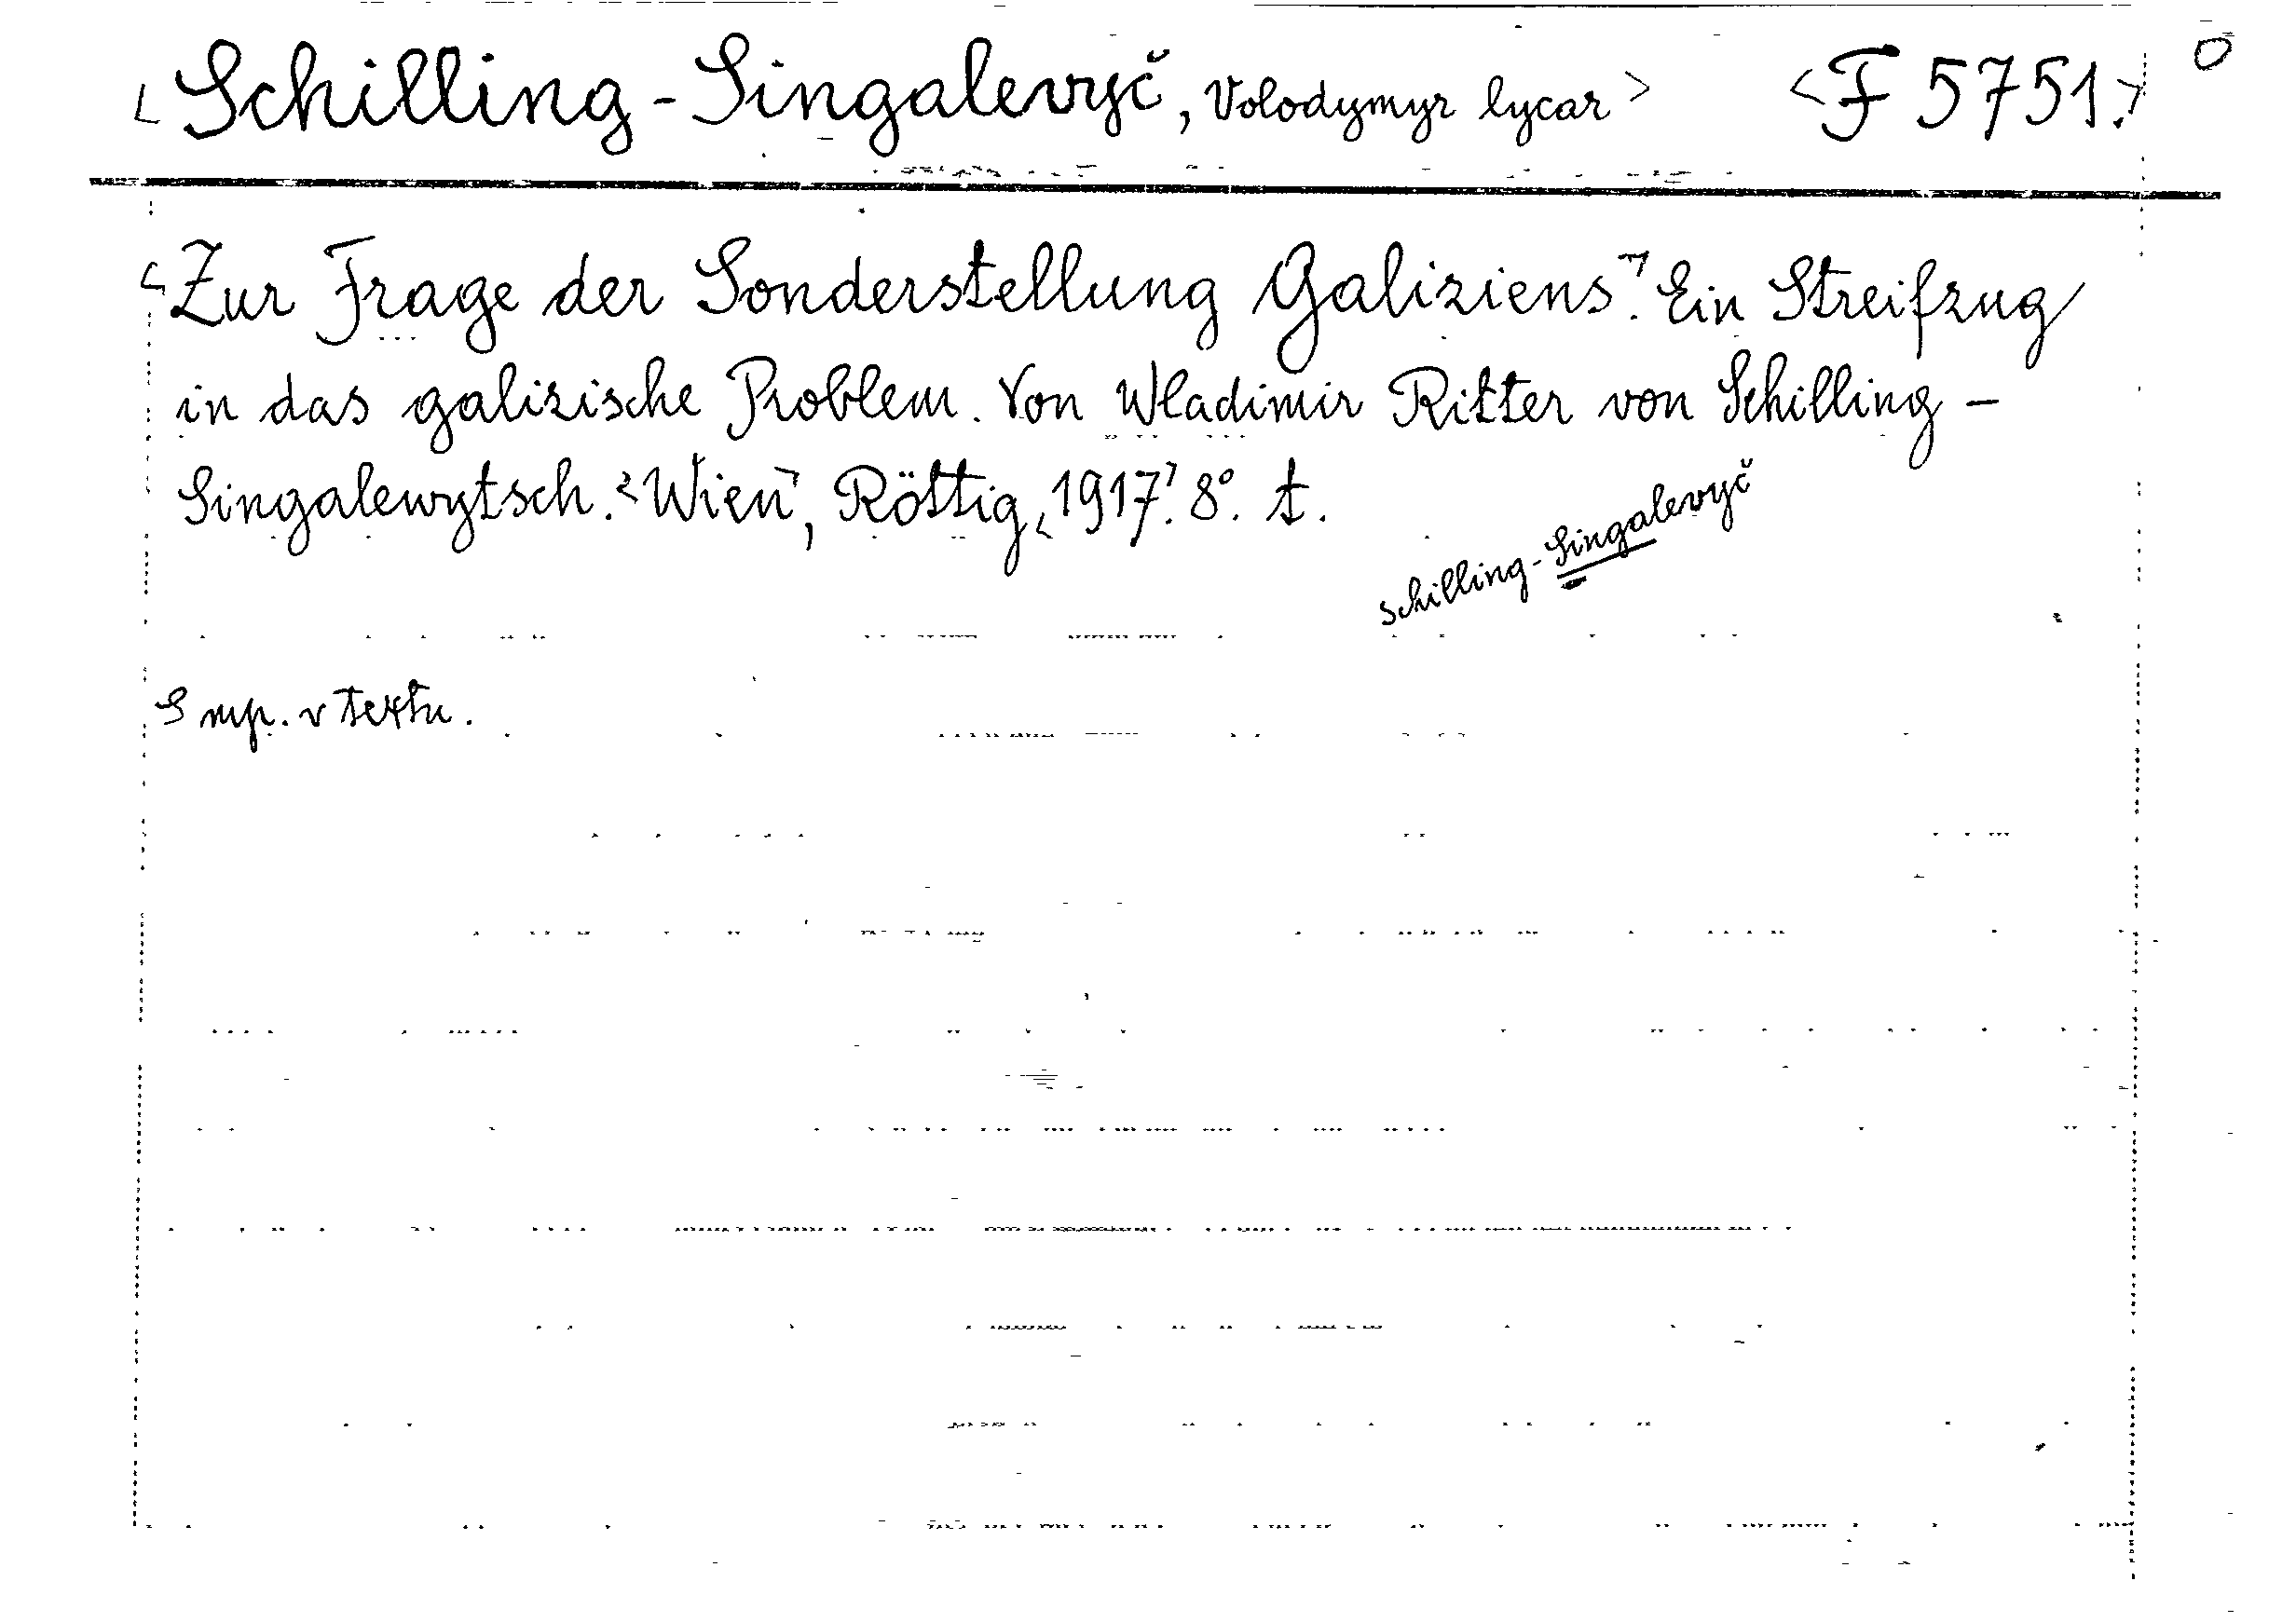 <Schilling-Singalevyč, Volodymyr lycar> <F 5751.> 0
<Zur Frage der Sonderstellung Galiziens>. Ein Streifzug
in das galizische Problem. Von Wladimir Ritter von Schilling-
Singalewytsch. <Wien>, Röttig, <1917>. 8°. t.
Schilling-Singalevyč
S mp. v textu.